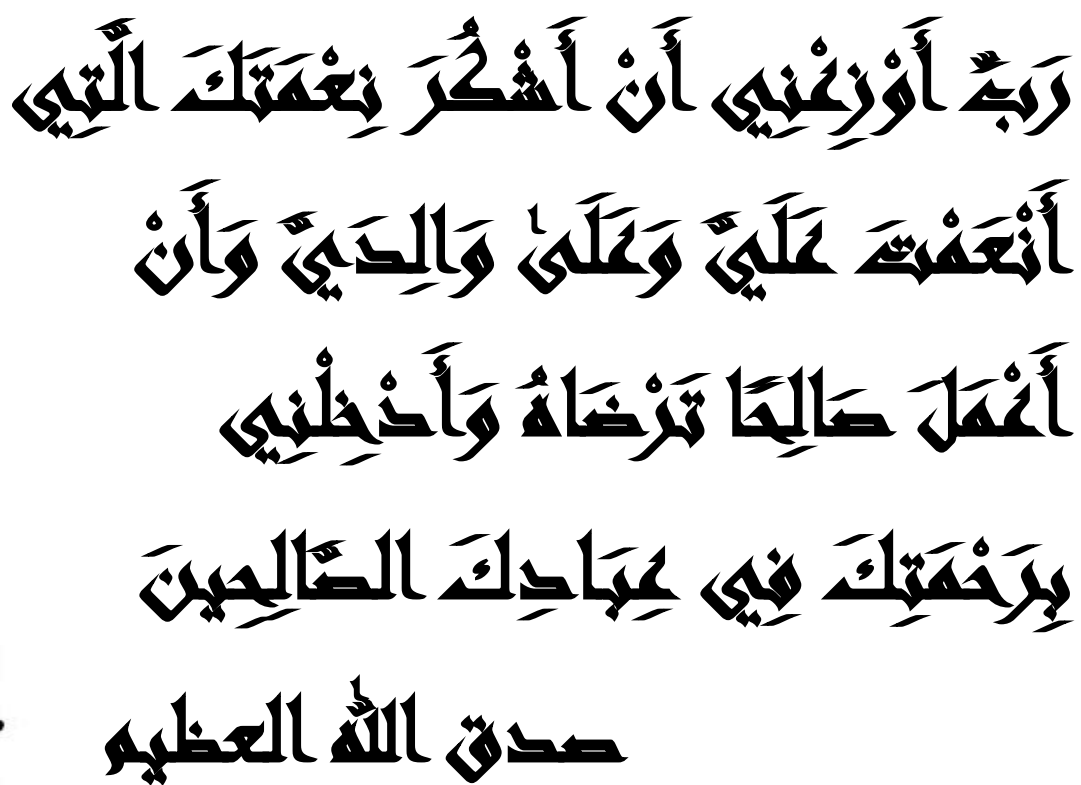 رَبِّ أَوْزِعْنِي أَنْ أَشْكُرَ نِعْمَتَكَ الَّتِي
أَنْعَمْتَ عَلَيَّ وَعَلَىٰ وَالِدَيَّ وَأَنْ
أَعْمَلَ صَالِحًا تَرْضَاهُ وَأَدْخِلْنِي
بِرَحْمَتِكَ فِي عِبَادِكَ الصَّالِحِينَ
صدق الله العظيم